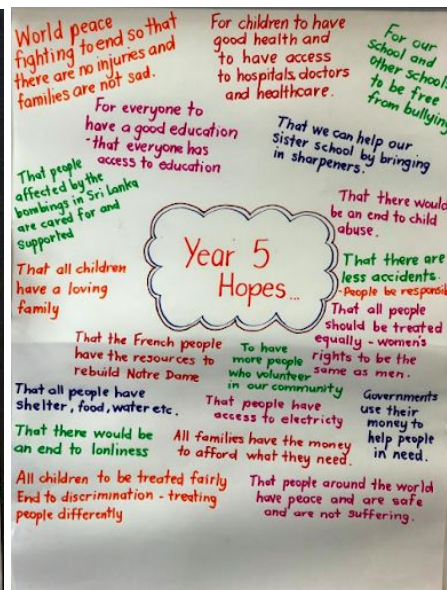 World peace
fighting to end so that
there are no injuries and
families are not sad.
For children to have
good health and
to have access
to hospitals, doctors
and healthcare.
For our
school and
other schools
to be free
from bullying
For everyone to
have a good education
- that everyone has
access to education
That we can help our
sister school by bringing
in sharpeners.
That people
affected by the
bombings in Sri Lanka
are cared for and
supported
That there would
be an end to child
abuse.
Year 5
Hopes...
That all children
have a loving
family
That there are
less accidents.
- People be responsib
That all people
should be treated
equally - women's
rights to be the
same as men.
That the French people
have the resources to
rebuild Notre Dame
To have
more people
who volunteer
in our community
That all people have
shelter, food, water etc.
That people have
access to electricty
Governments
use their
money to
help people
in need.
That there would be
an end to lonliness
All families have the money
to afford what they need.
All children to be treated fairly
End to discrimination - treating
people differently
That people around the world
have peace and are safe
and are not suffering.